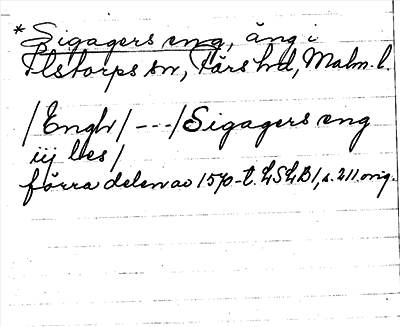 * Sigagers eng, äng i
Ilstorps sn, Färs hd, Malm. l.
/Engh/ ---/Sigagers eng
iij les/
förra delen av 1570-t. LSLB1, s. 211 orig.